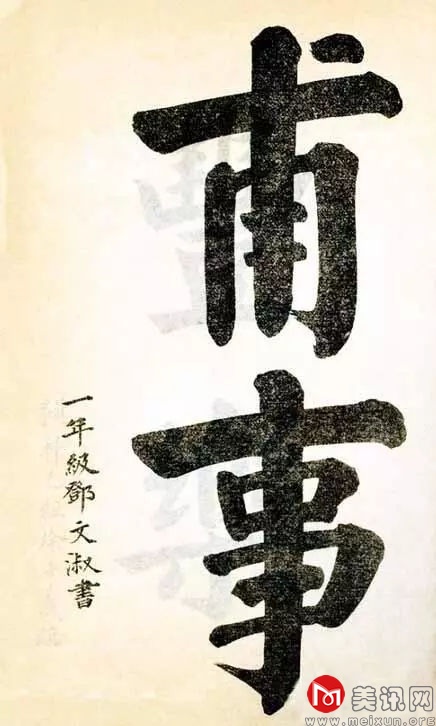 甫事
一年級鄧文淑書
美讯网
www.meixun.org